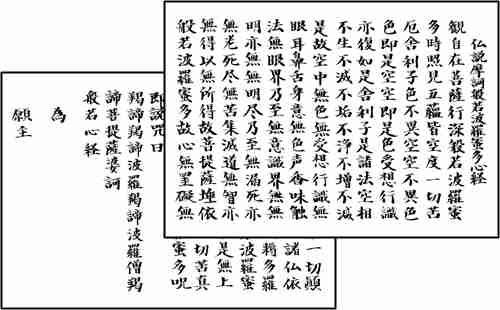 仏説摩訶般若波羅蜜多心経
観自在菩薩行深般若波羅蜜
多時照見五蘊皆空度一切苦
厄舎利子色不異空空不異色
色即是空空即是色受想行識
亦復如是舎利子是諸法空相
不生不滅不垢不浄不増不減
是故空中無色無受想行識無
眼耳鼻舌身意無色声香味触
法無眼界乃至無意識界無無
明亦無無明尽乃至無老死亦
無老死尽無苦集滅道無智亦
無得以無所得故菩提薩埵依
般若波羅蜜多故心無罣礙無
一切顛
諸仏依
耨多羅
波羅蜜
是無上
切苦真
蜜多呪
即説呪曰
羯諦羯諦波羅羯諦波羅僧羯
諦菩提薩婆訶
般若心経
為
願主